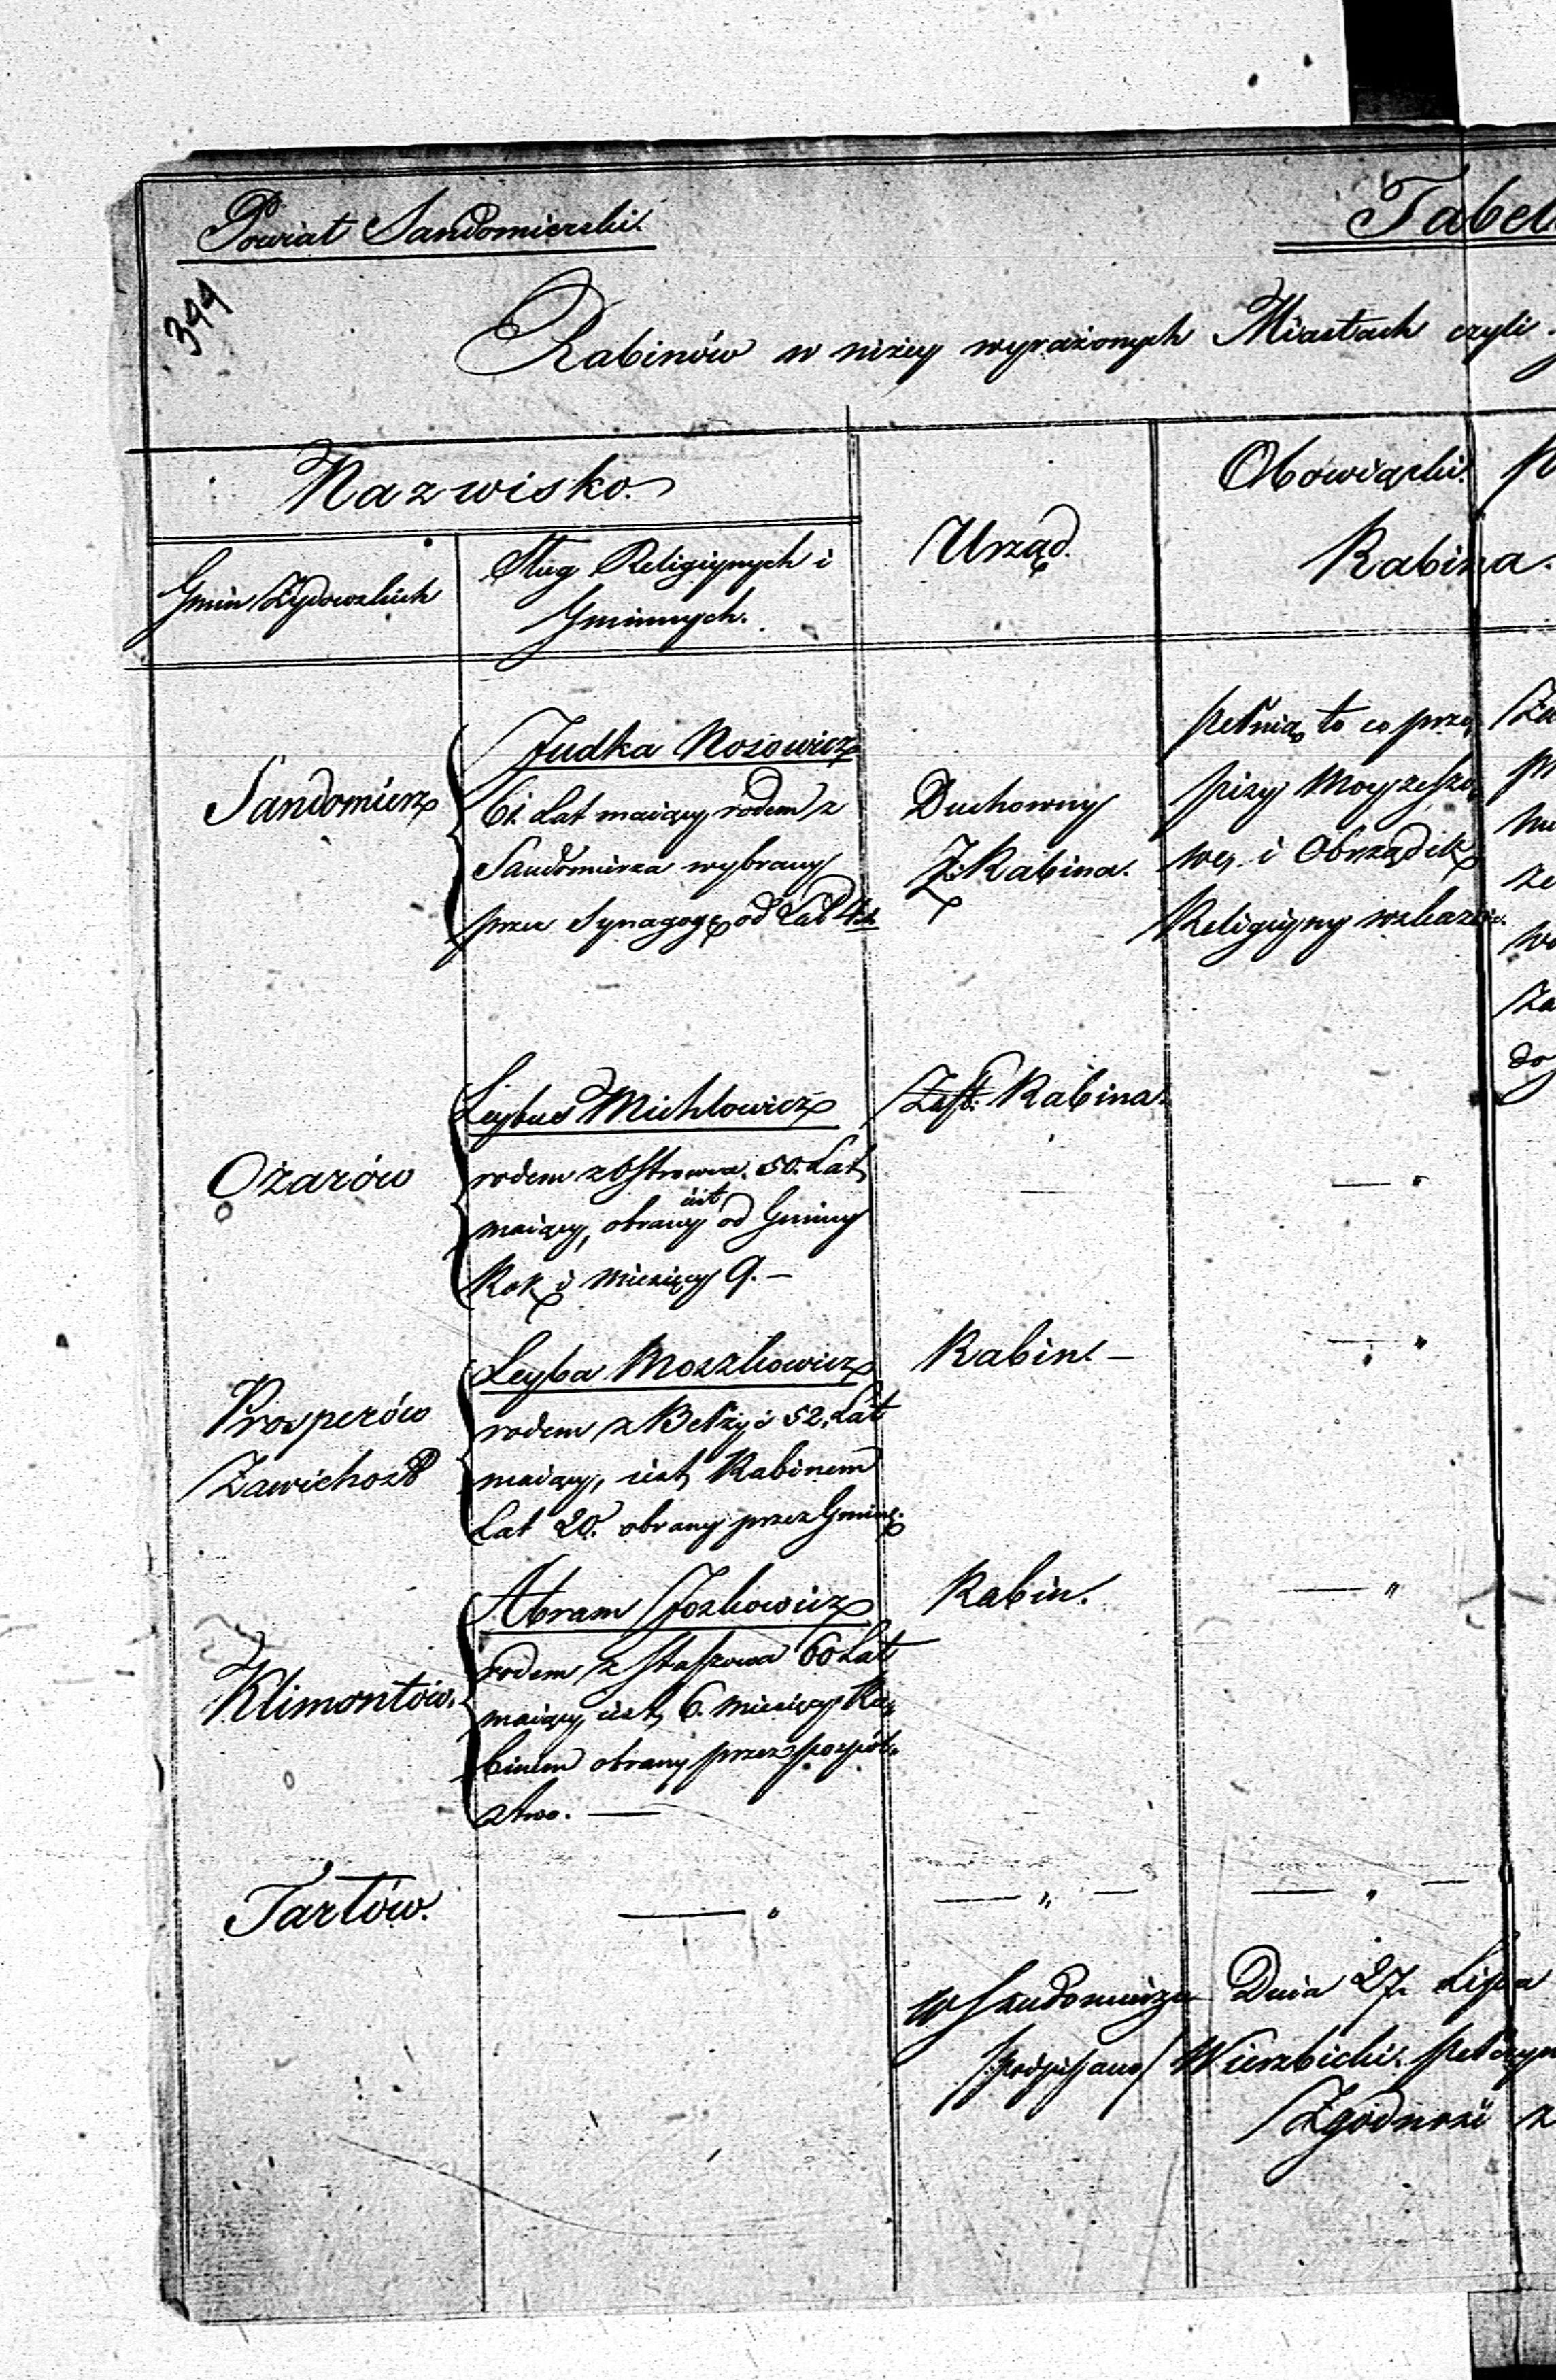 Powiat Sandomierski.
Tabel
394
Rabinów w niżey wyrażonych Miastach czyli
Nazwisko.
Urząd.
Obowiązki
Rabina.
Gmin Żydowskich
Sług Religiynych i
Gminnych.
Sandomierz
Judka Nosowicz
61. Lat maiący rodem z
Sandomierza wybrany
przez Synagogę od Lat 4ch
Duchowny
Z: Rabina.
pełnią to co prze„
pisy Moyżeszo„
we, i Obrządek
Religiyny wskazuie.
Ożarów
Leybus Michlowicz
rodem z Ostrowca. 50. Lat
maiący, obrany iest od Gminy
Rok i Miesięcy 9. —
Zast: Rabina
— „
Prosperów
Zawichost
Leyba Moszkowicz
rodem z Bełżyc 52. Lat
maiący, iest Rabinem
Lat 20. obrany przez Gminę.
Rabin. —
— „
Klimontów.
Abram Joskowicz
rodem z Staszowa 60 Lat
maiący, iest 6. Miesięcy Ra„
binem obrany przez pospól„
stwo. —
Rabin.
— „
Tarłów.
— „
— „ —
— „ —
w Sandomierzu Dnia 27. Lipca
/podpisano/ Wierzbicki.
Zgodność z